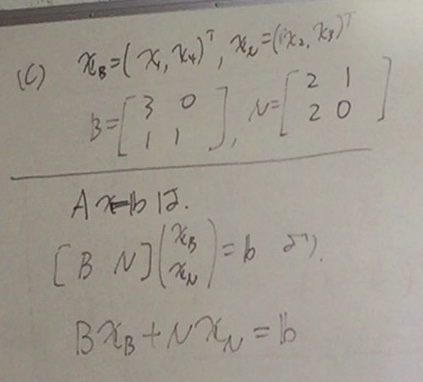 (C) x_B=(x_1, x_4)^T, x_N=(x_2, x_3)^T
B=[3 0; 1 1], N=[2 1; 2 0]
Ax=b は.
[B N](x_B; x_N)=b より).
Bx_B+Nx_N=b